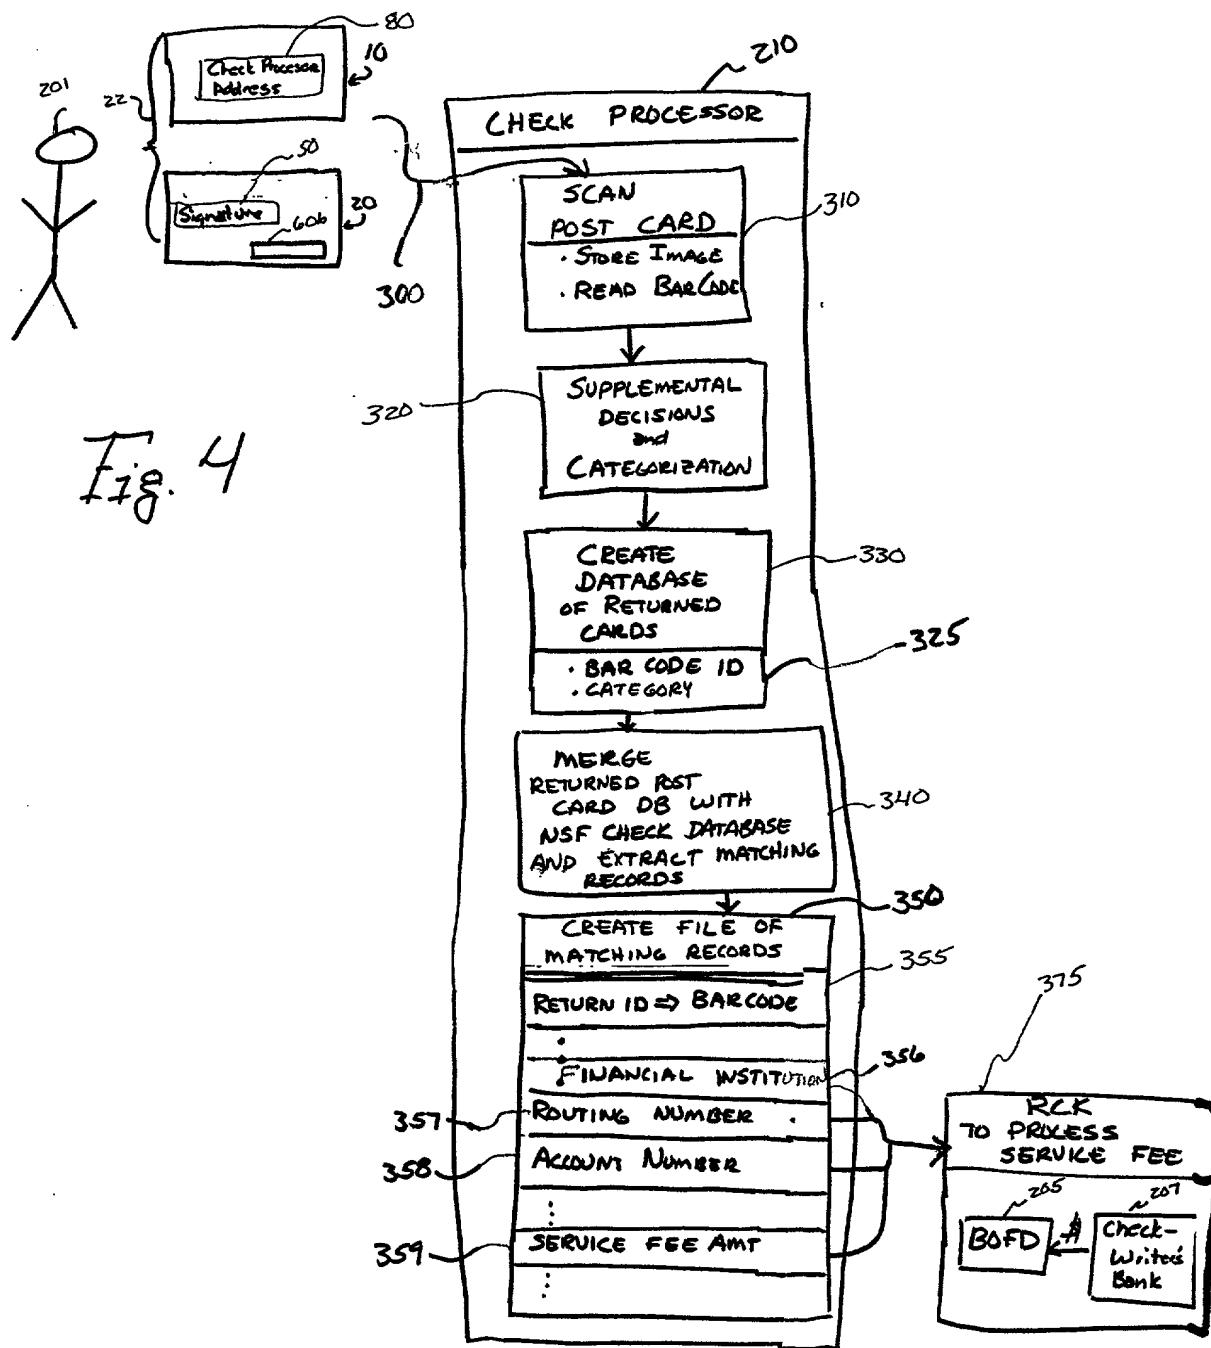 80
10
Check Processor
Address
201
22
50
Signature
20
60b
300
210
CHECK PROCESSOR
SCAN
POST CARD
310
· STORE IMAGE
· READ BARCODE
320
SUPPLEMENTAL
DECISIONS
and
CATEGORIZATION
Fig. 4
CREATE
DATABASE
OF RETURNED
CARDS
330
325
· BAR CODE ID
· CATEGORY
MERGE
RETURNED POST
CARD DB WITH
NSF CHECK DATABASE
AND EXTRACT MATCHING
RECORDS
340
350
CREATE FILE OF
MATCHING RECORDS
355
RETURN ID ⇒ BARCODE
FINANCIAL INSTITUTION
356
357
ROUTING NUMBER
358
ACCOUNT NUMBER
359
SERVICE FEE AMT
375
RCK
TO PROCESS
SERVICE FEE
205
207
BOFD
Check-
Writer's
Bank